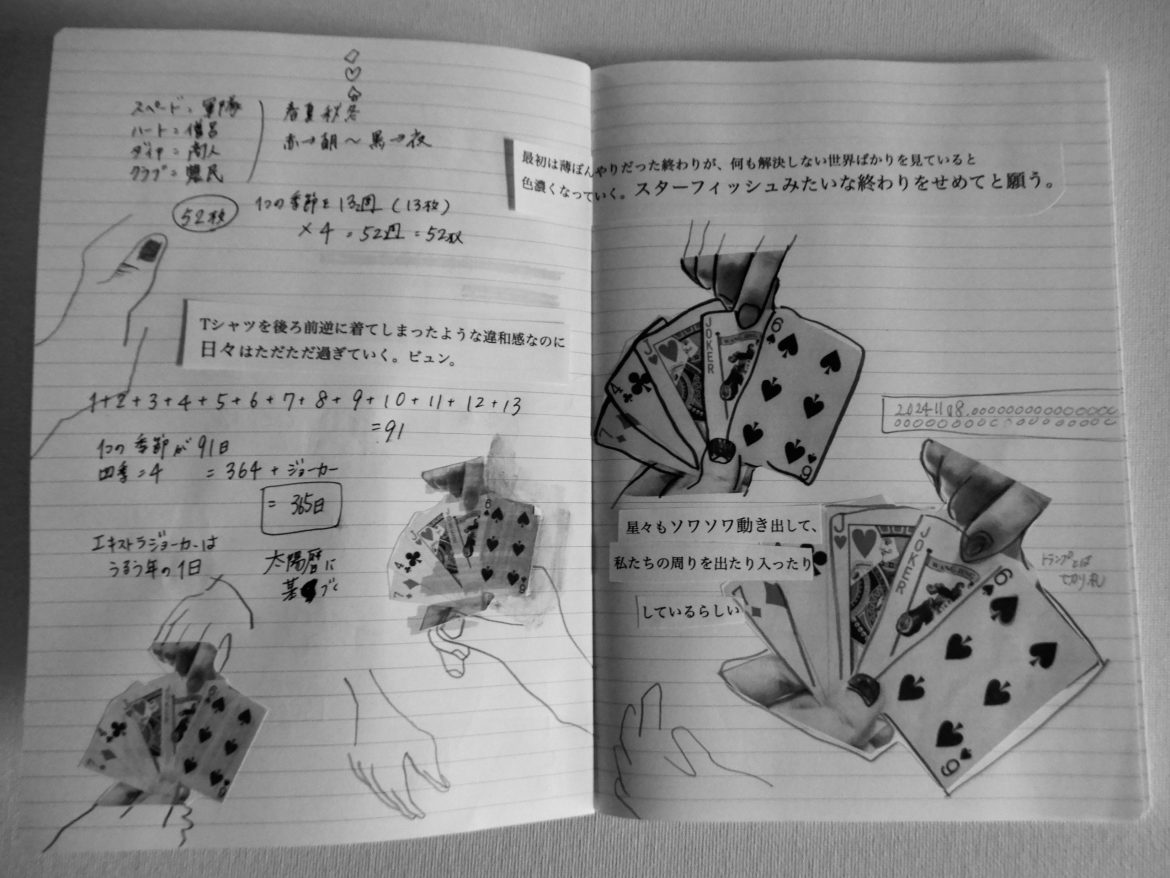 スペード = 軍隊
ハート = 僧呂
ダイヤ = 商人
クラブ = 農民
春夏秋冬
赤→朝〜黒→夜
52枚
1つの季節を13週(13枚)
×4 = 52週 = 52枚
Tシャツを後ろ前逆に着てしまったような違和感なのに
日々はただただ過ぎていく。ビュン。
1+2+3+4+5+6+7+8+9+10+11+12+13
=91
1つの季節が91日
四季=4 = 364 + ジョーカー
= 365日
エキストラジョーカーは
うるう年の1日
太陽暦に
基づく
最初は薄ぼんやりだった終わりが、何も解決しない世界ばかりを見ていると
色濃くなっていく。スターフィッシュみたいな終わりをせめてと願う。
JOKER
J
4
7
6
9
20241108.
星々もソワソワ動き出して、
私たちの周りを出たり入ったり
しているらしい
J
JOKER
6
9
トランプとは
切り札